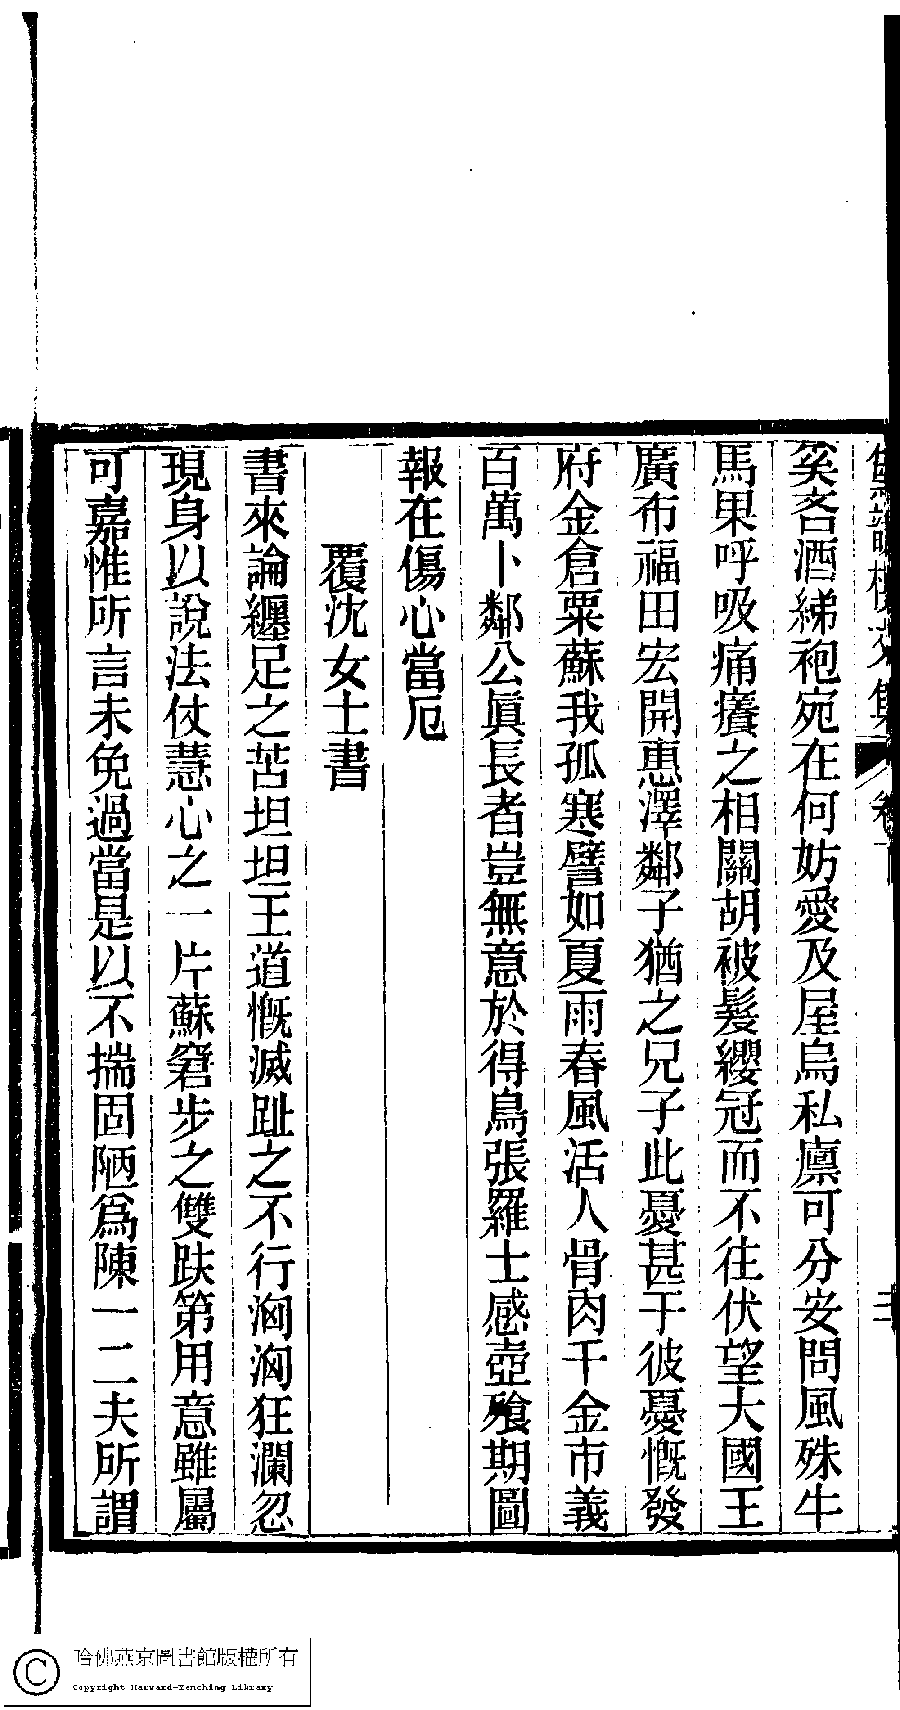 矣吝酒綈袍宛在何妨愛及屋烏私廪可分安問風殊牛
馬果呼吸痛癢之相關胡被髮纓冠而不往伏望大國王
廣布福田宏開惠澤鄰子猶之兄子此憂甚于彼憂慨發
府金倉粟蘇我孤寒譬如夏雨春風活人骨肉千金市義
百萬卜鄰公眞長者豈無意於得鳥張羅士感壺飱期圖
報在傷心當厄
覆沈女士書
書來論纏足之苦坦坦王道慨滅趾之不行洶洶狂瀾忽
現身以說法仗慧心之一片蘇窘步之雙趺第用意雖屬
可嘉惟所言未免過當是以不揣固陋爲陳一二夫所謂
哈佛燕京圖書館版權所有
Copyright Harvard-Yenching Library